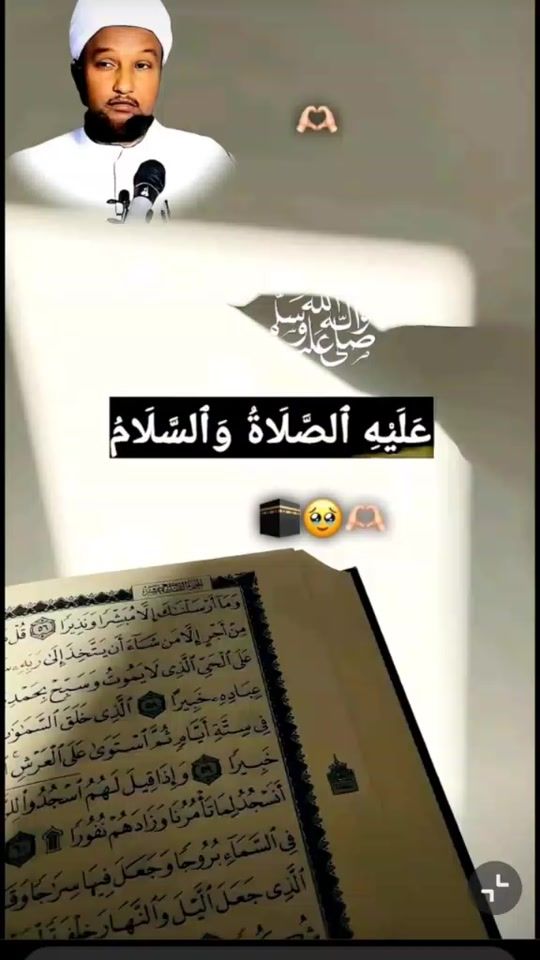 صلى الله عليه وآله وسلم
عَلَيْهِ ٱلصَّلَاةُ وَٱلسَّلَامُ
وَمَآ أَرْسَلْنَٰكَ إِلَّا مُبَشِّرًا وَنَذِيرًا ٥٦ قُلْ
مِنْ أَجْرٍ إِلَّا مَن شَآءَ أَن يَتَّخِذَ إِلَىٰ رَبِّهِۦ
عَلَى ٱلْحَىِّ ٱلَّذِى لَا يَمُوتُ وَسَبِّحْ بِحَمْدِ
عِبَادِهِۦ خَبِيرًا ٥٨ ٱلَّذِى خَلَقَ ٱلسَّمَٰوَٰ
فِى سِتَّةِ أَيَّامٍ ثُمَّ ٱسْتَوَىٰ عَلَى ٱلْعَرْشِ
خَبِيرًا ٥٩ وَإِذَا قِيلَ لَهُمُ ٱسْجُدُوا۟ لِل
أَنَسْجُدُ لِمَا تَأْمُرُنَا وَزَادَهُمْ نُفُورًا ۩ ٦٠
فِى ٱلسَّمَآءِ بُرُوجًا وَجَعَلَ فِيهَا سِرَٰجًا وَقَ
ٱلَّذِى جَعَلَ ٱلَّيْلَ وَٱلنَّهَارَ خِلْفَةً